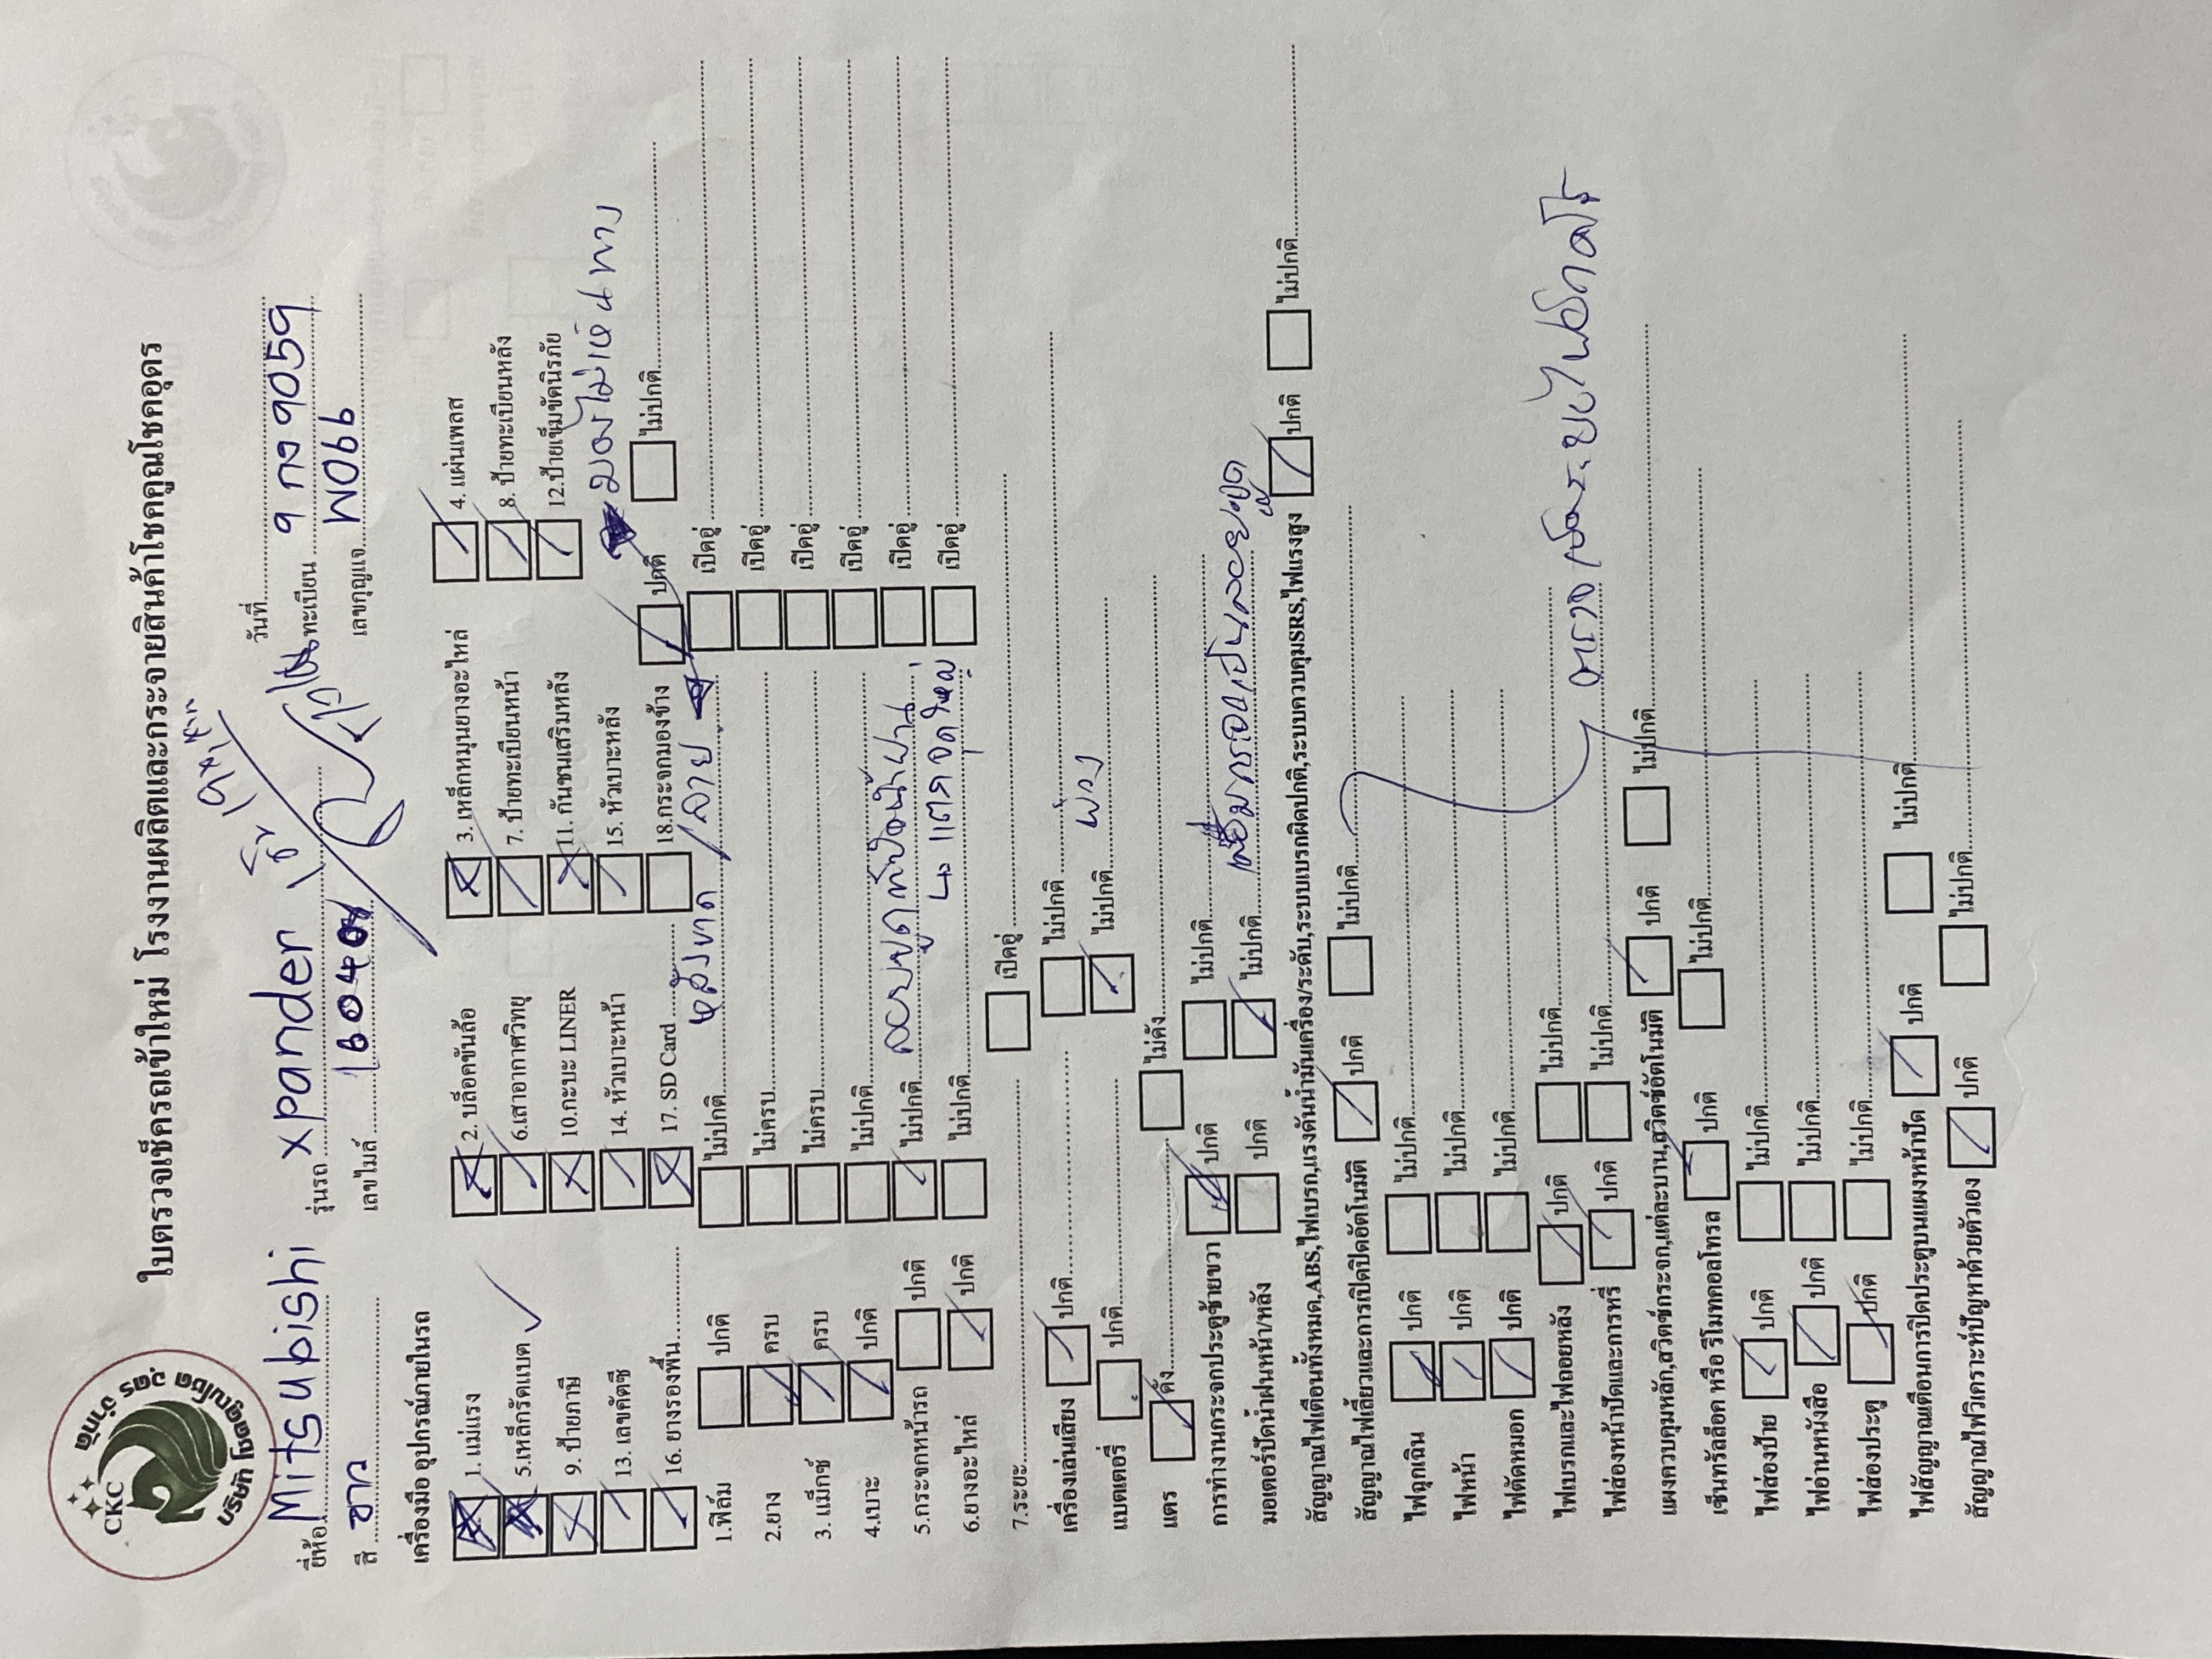 CKC
บริษัท โชคคูณโชค อุดร จำกัด
ใบตรวจเช็ครถเข้าใหม่ โรงงานผลิตและกระจายสินค้าโชคคูณโชคอุดร
วันที่
ยี่ห้อ Mitsubishi รุ่นรถ xpander ทะเบียน 9 กง 9059
สี ขาว เลขไมล์ 16040 เลขกุญแจ W066
เครื่องมือ อุปกรณ์ภายในรถ
1. แม่แรง 2. บล็อคขันล้อ 3. เหล็กหมุนยางอะไหล่ 4. แผ่นเพลส
5.เหล็กรัดแบต 6.เสาอากาศวิทยุ 7. ป้ายทะเบียนหน้า 8. ป้ายทะเบียนหลัง
9. ป้ายภาษี 10.กะบะ LINER 11. กันชนเสริมหลัง 12.ป้ายเข็มขัดนิรภัย
13. เลขคัตซี 14. หัวเบาะหน้า 15. หัวเบาะหลัง มองไม่เห็นทาง
16. ยางรองพื้น 17. SD Card 18.กระจกมองข้าง ปกติ ไม่ปกติ
1.ฟิล์ม ปกติ ไม่ปกติ หลังขาด / ลาย เปิดอู่
2.ยาง ครบ ไม่ครบ เปิดอู่
3. แม็กซ์ ครบ ไม่ครบ เปิดอู่
4.เบาะ ปกติ ไม่ปกติ เปิดอู่
5.กระจกหน้ารถ ปกติ ไม่ปกติ เปิดอู่
6.ยางอะไหล่ ปกติ ไม่ปกติ แตกจุดใหญ่ เปิดอู่
7.ระยะ เปิดอู่
เครื่องเล่นเสียง ปกติ ไม่ปกติ
แบตเตอรี่ ปกติ ไม่ปกติ พ่วง
แตร ดัง ไม่ดัง
การทำงานกระจกประตูซ้ายขวา ปกติ ไม่ปกติ
มอเตอร์ปัดน้ำฝนหน้า/หลัง ปกติ ไม่ปกติ
สัญญาณไฟเตือนทั้งหมด,ABS,ไฟเบรก,แรงดันน้ำมันเครื่อง/ระดับ,ระบบเบรกผิดปกติ,ระบบควบคุมSRS,ไฟแรงสูง ปกติ ไม่ปกติ
สัญญาณไฟเลี้ยวและการเปิดปิดอัตโนมัติ ปกติ ไม่ปกติ
ไฟฉุกเฉิน ปกติ ไม่ปกติ
ไฟหน้า ปกติ ไม่ปกติ
ไฟตัดหมอก ปกติ ไม่ปกติ
ไฟเบรกและไฟถอยหลัง ปกติ ไม่ปกติ
ไฟส่องหน้าปัดและการหรี่ ปกติ ไม่ปกติ
แผงควบคุมหลัก,สวิตช์กระจก,แต่ละบาน,สวิตช์อัตโนมัติ ปกติ ไม่ปกติ
เซ็นทรัลล็อค หรือ รีโมทคอลโทรล ปกติ ไม่ปกติ
ไฟส่องป้าย ปกติ ไม่ปกติ
ไฟอ่านหนังสือ ปกติ ไม่ปกติ
ไฟส่องประตู ปกติ ไม่ปกติ
ไฟสัญญาณเตือนการปิดประตูบนแผงหน้าปัด ปกติ ไม่ปกติ
สัญญาณไฟวิเคราะห์ปัญหาด้วยตัวเอง ปกติ ไม่ปกติ